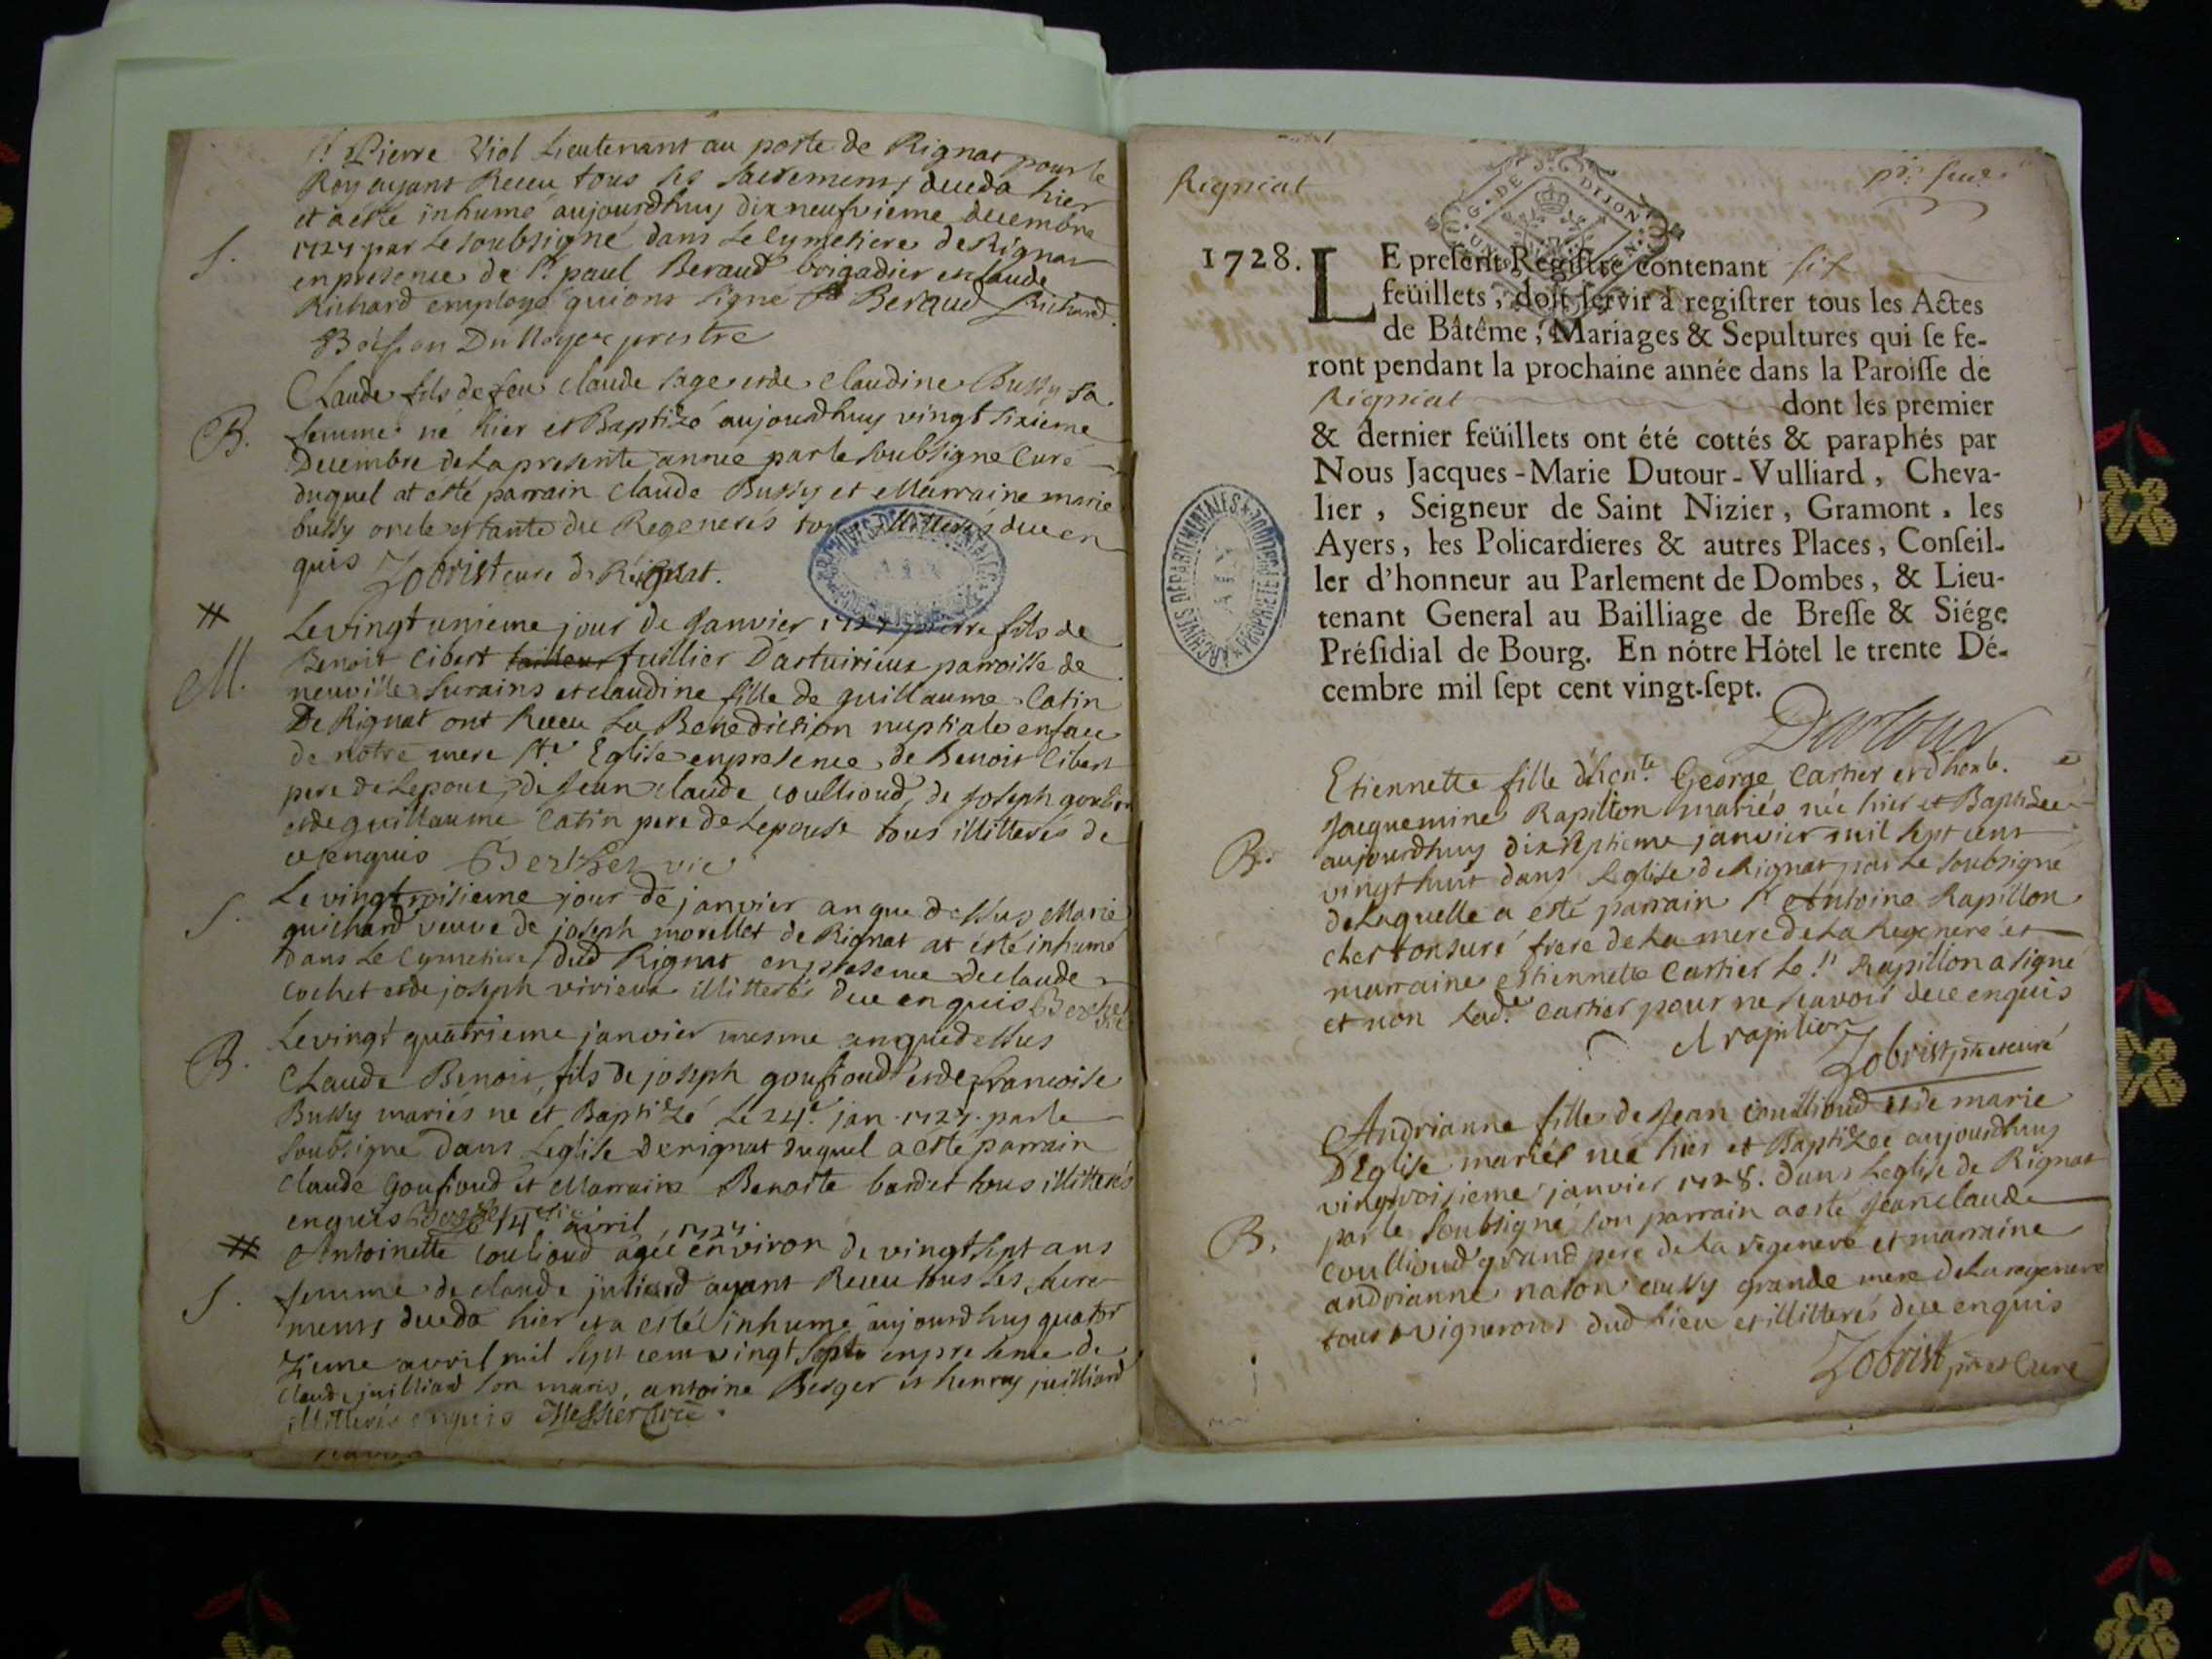 Sr Pierre Viol Lieutenant au poste de Rignat pour le
Roy ayant Receu tous les sacremens deceda hier
et a esté inhumé aujourdhuy dix neufvieme decembre
S. 1727 par Le soubsigné dans Le Cymetiere de Rignat
en presence de Sr paul Beraud brigadier et Claude
Richard employé qui ont signé Beraud Richard
Du Noyer prestre
Claude fils de feu Claude Sage et de Claudine Bussy sa
B. femme né hier et Baptizé aujourdhuy vingt sixieme
Decembre de La presente année par le soubsigné Curé
duquel at esté parrain Claude Bussy et Marraine marie
bussy oncle et tante du Regenerés tous illitterés de ce en
quis Zobrist curé de Rignat.
# Le vingt unieme jour de Janvier 1727 pierre fils de
M. Benoit Cibert tailleur fuillier Dartuirieux parroisse de
neuville surains et Claudine fille de guillaume Catin
De Rignat ont Receu La Benediction nuptiale en face
de notre mere Ste Eglise en presence de Benoit Cibert
pere de Lepoux, de Jean Claude Coullioud, de Joseph
et de guillaume Catin pere de Lepouse tous illitterés de
ce enquis Berthet vic
S. Le vingtroisieme jour de janvier an que dessus Marie
guichard veuve de joseph morellet de Rignat at été inhumé
Dans Le Cymetiere dud Rignat en presence de Claude
Cochet et de joseph virieux illitterés de ce enquis Berthet
vic
B. Le vingt quatrieme janvier mesme an que dessus
Claude Benoit, fils de joseph goufioud et de francoise
Bussy mariés né et Baptizé Le 24e jan. 1727. par le
soubsigné dans Leglise de rignat duquel a esté parrain
Claude Goufioud et Marraine Benoite bardet tous illitterés
enquis 14 avril 1727.
# Antoinette Coulioud agée environ de vingt sept ans
S. femme de Claude juliard ayant Receu tous les sacre
mens deceda hier et a esté inhumé aujourdhuy quator
zieme avril mil sept cent vingt sept en presence de
Claude juilliard son maris, antoine Berger et henry juilliard
illitterés enquis
Rigniat
1728. LE present Registre contenant six
feüillets, doit servir à registrer tous les Actes
de Bâtême, Mariages & Sepultures qui se fe-
ront pendant la prochaine année dans la Paroisse de
Rigniat dont les premier
& dernier feüillets ont été cottés & paraphés par
Nous Jacques-Marie Dutour-Vulliard, Cheva-
lier, Seigneur de Saint Nizier, Gramont, les
Ayers, les Policardieres & autres Places, Conseil-
ler d'honneur au Parlement de Dombes, & Lieu-
tenant General au Bailliage de Bresse & Siége
Présidial de Bourg. En nôtre Hôtel le trente Dé-
cembre mil sept cent vingt-sept.
Dutour
Etiennette fille d'honte. George Cartier et d'honte.
Jacquemine Rapillon mariés née hier et Baptizée
B. aujourdhuy dix septieme janvier mil sept cent
vingt huit dans Leglise de Rignat par Le soubsigné
de Laquelle a esté parrain Sr Antoine Rapillon
clerc tonsuré frere de La mere de La Regeneré et
marraine etiennette Cartier Le Sr Rapillon a signé
et non Lade Cartier pour ne scavoir de ce enquis
A rapillon
Zobrist ptre et curé
Andrianne fille de Jean Coullioud et de marie
DEglise mariés née hier et Baptizée aujourdhuy
vingtroisieme janvier 1728. dans Leglise de Rignat
B. par le soubsigné son parrain a esté Jean Claude
Coullioud grand pere de La regeneré et marraine
andrianne naton grande mere de La regeneré
tous vignerons dud Lieu et illitterés de ce enquis
Zobrist ptre et Curé
G. DE DIJON
ARCHIVES DEPARTEMENTALES
AIN
PROPRIETE PUBLIQUE